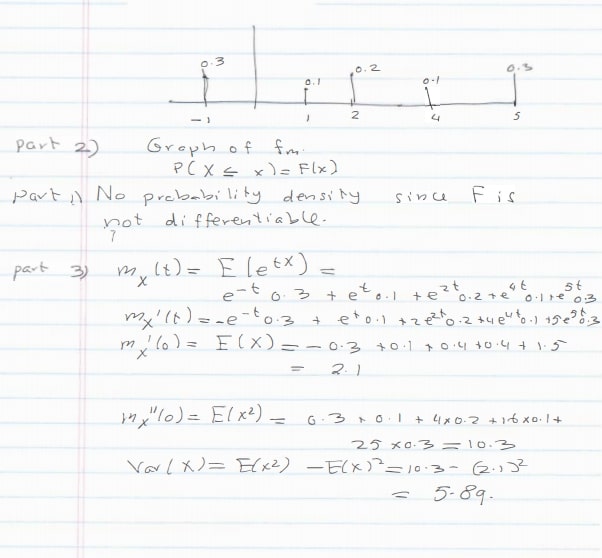 0.3 0.1 0.2 0.1 0.3
-1 1 2 4 5
part 2) Graph of fm.
P(X ≤ x) = F(x)
part 1) No probability density since F is
not differentiable.
?
part 3) m_X(t) = E[e^{tX}) =
e^{-t} 0.3 + e^t 0.1 + e^{2t} 0.2 + e^{4t} 0.1 + e^{5t} 0.3
m_X'(t) = -e^{-t} 0.3 + e^t 0.1 + 2e^{2t} 0.2 + 4e^{4t} 0.1 + 5e^{5t} 0.3
m_X'(0) = E(X) = -0.3 + 0.1 + 0.4 + 0.4 + 1.5
= 2.1
m_X''(0) = E(X²) = 0.3 + 0.1 + 4×0.2 + 16×0.1 +
25×0.3 = 10.3
Var(X) = E(X²) - E(X)² = 10.3 - (2.1)²
= 5.89.